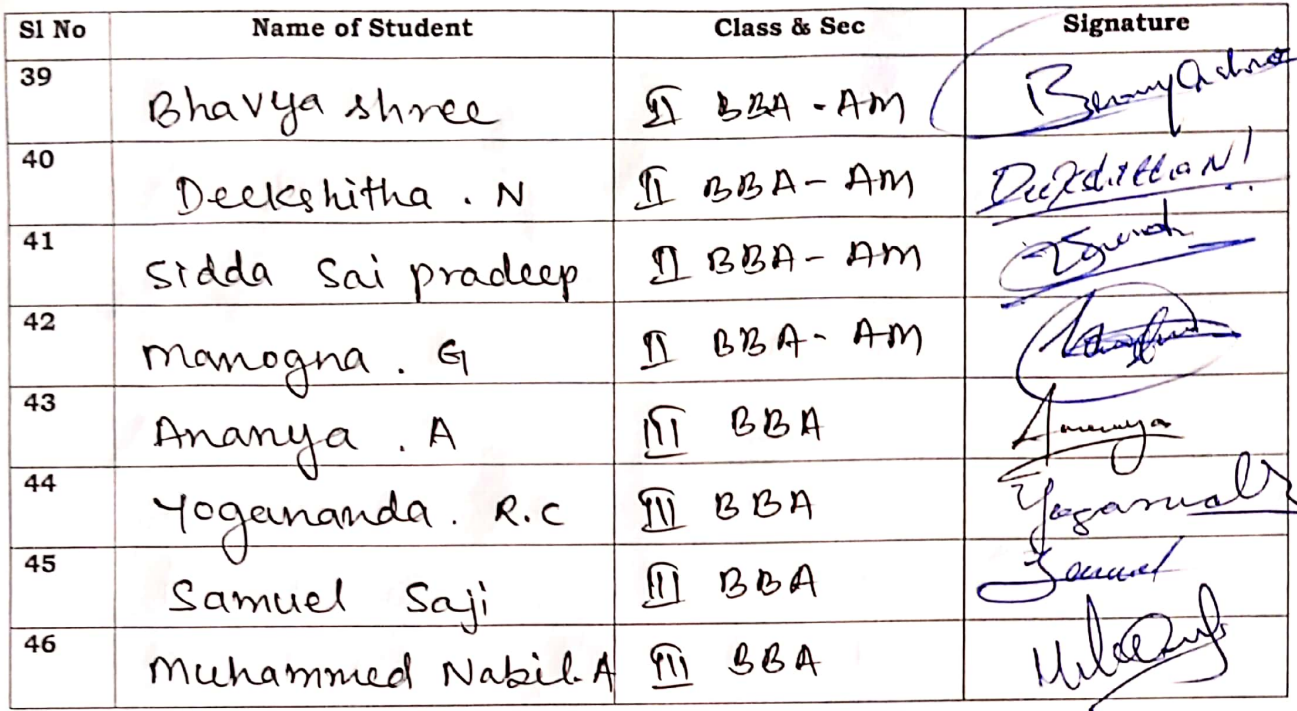 Sl No Name of Student Class & Sec Signature
39 Bhavya shree II BBA - AM
40 Deekshitha . N II BBA - AM Deekshitha N
41 Sidda Sai pradeep II BBA - AM
42 Manogna . G II BBA - AM
43 Ananya . A III BBA Ananya
44 Yogananda . R.C III BBA
45 Samuel Saji III BBA Samuel
46 Muhammed Nabil.A III BBA